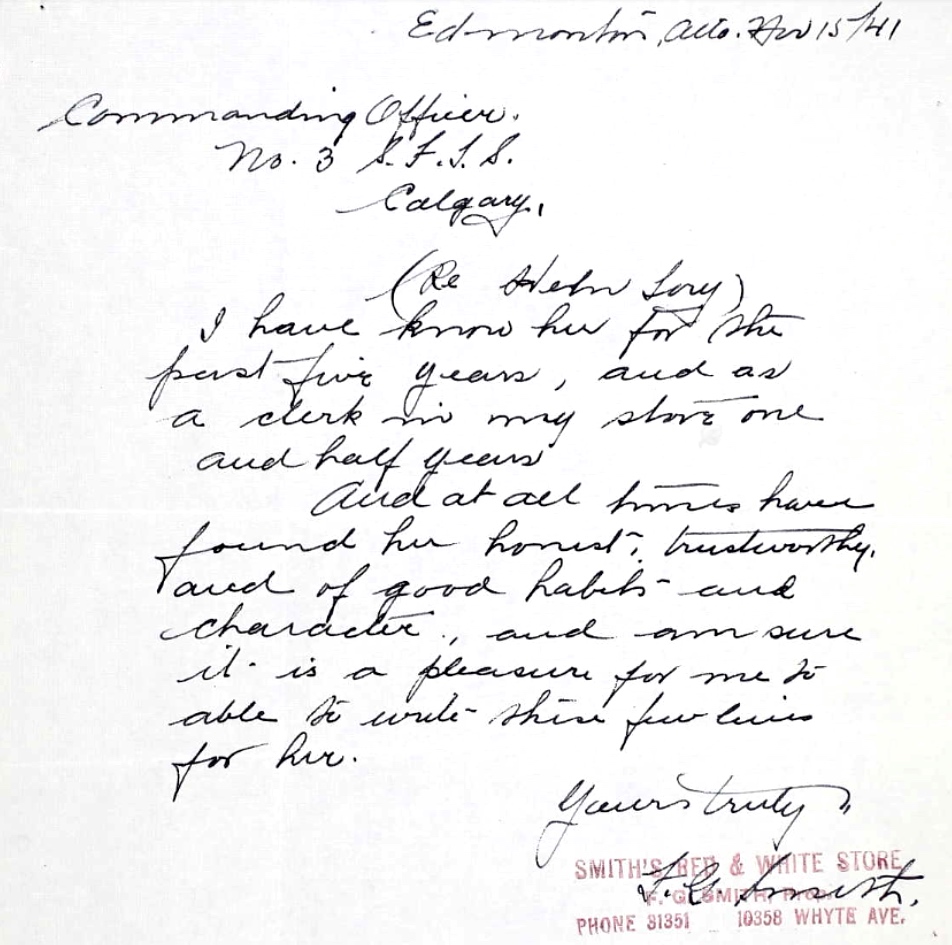 Edmonton, Alta. Nov 15/41
Commanding Officer.
No. 3 S.F.T.S.
Calgary.,
(Re Helen Lory)
I have know her for the
past five years, and as
a clerk in my store one
and half years
And at all times have
found her honest, trustworthy,
and of good habits and
character., and am sure
it is a pleasure for me to
able to write these few lines
for her.
Yours truly "
SMITH'S RED & WHITE STORE
F. G. Smith.
F. G. SMITH, Prop.
PHONE 31351 10358 WHYTE AVE.